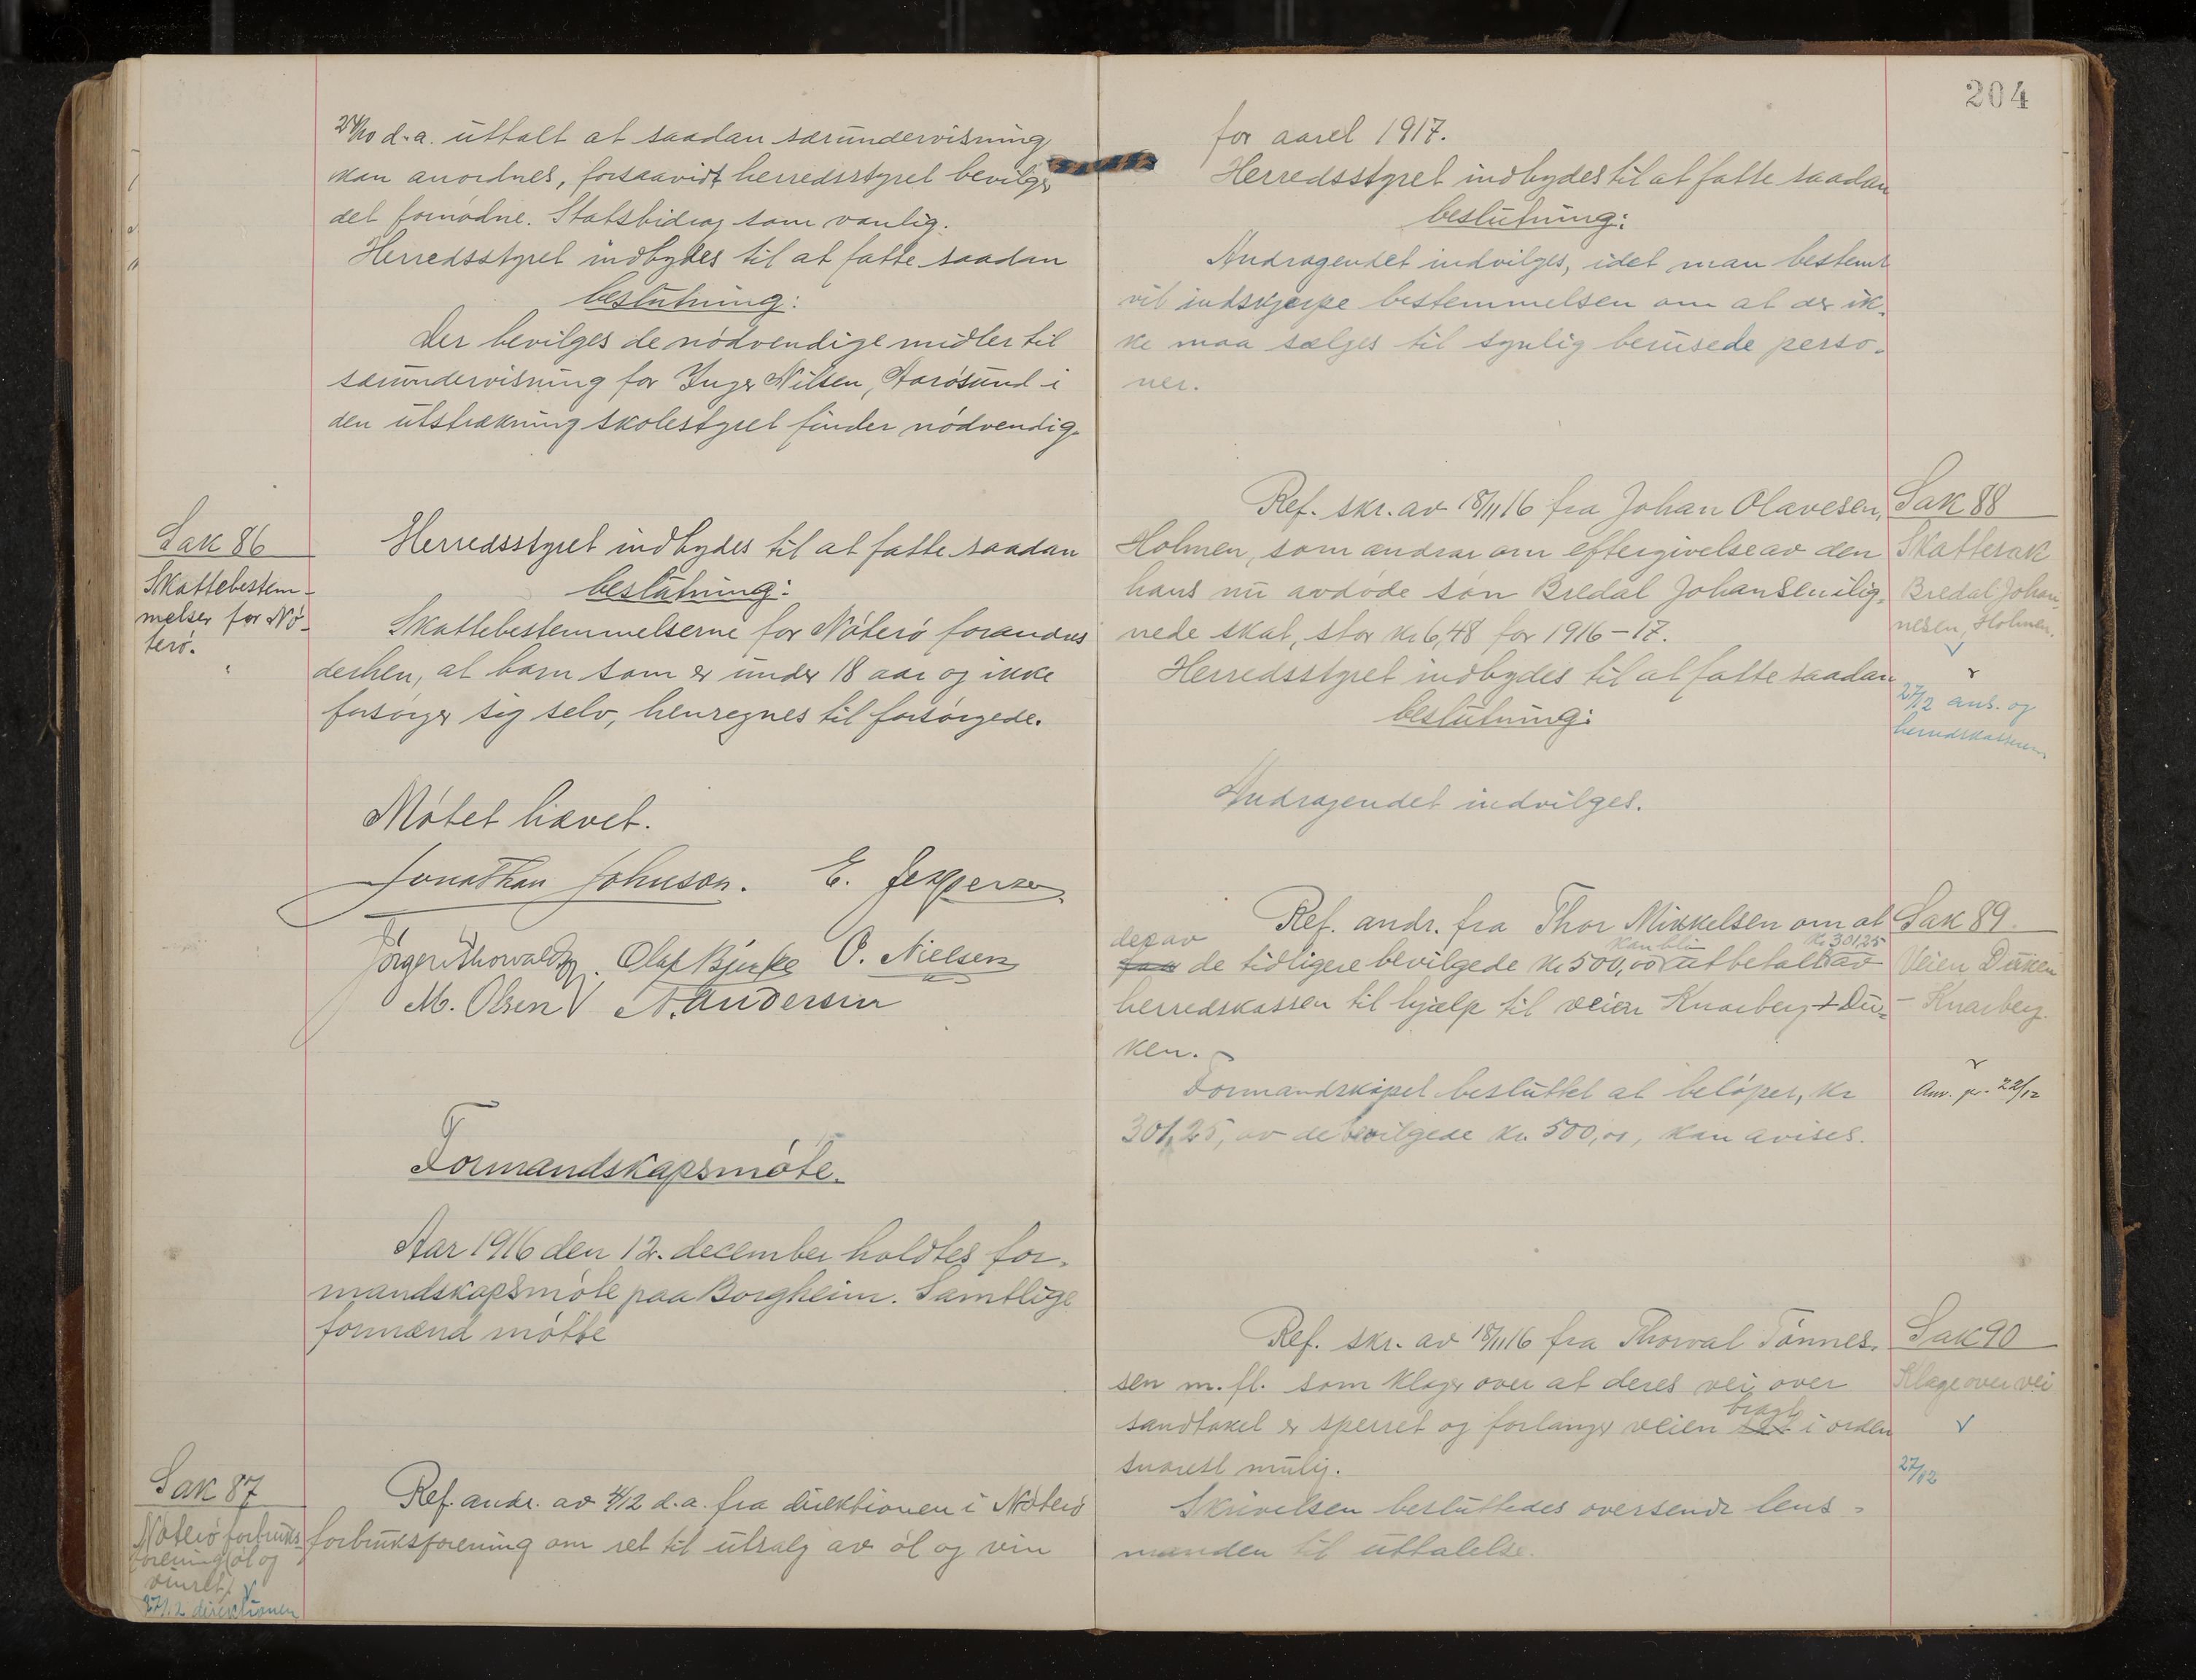 d.a. uttalt at saadan særundervisning
kan anordnes, forsaavidt herredsstyret bevilger
det fornødne. Statsbidrag som vanlig.
Herredsstyret indbydes til at fatte saadan
beslutning:
Der bevilges de nødvendige midler til
særundervisning for Inger Nilsen, Aarøsund i
den utstrækning skolestyret finder nødvendig.
Sak 86
Skattebestem-
melser for Nø-
terø.
Herredsstyret indbydes til at fatte saadan
beslutning:
Skattebestemmelserne for Nøterø forandres
derhen, at barn som er under 18 aar og ikke
forsørger sig selv, henregnes til forsørgede.
Møtet hævet.
Jonathan Johnson. E. Jespersen
Jørgen Thorvaldsen. Olaf Bjerke O. Nielsen
M. Olsen A. Andersen
Formandskapsmøte.
Aar 1916 den 12. december holdtes for-
mandskapsmøte paa Borgheim. Samtlige
formænd møtte
Sak 87
Nøterø forbruks-
forening (øl og
vinret)
27/12 direktionen
Ref. andr. av 4/12 d.a. fra direktionen i Nøterø
forbruksforening om ret til utsalg av øl og vin
204
for aaret 1917.
Herredsstyret indbydes til at fatte saadan
beslutning:
Andragendet indvilges, idet man bestemt
vil indskjærpe bestemmelsen om at der ik-
ke maa sælges til synlig berusede perso-
ner.
Sak 88
Skattesak
Bredal Johan-
nesen, Holmen.
27/12 anv. og
herredskasseren
Ref. skr. av 18/11 16 fra Johan Olavesen,
Holmen, som andrar om eftergivelse av den
hans nu avdøde søn Bredal Johansen ilig-
nede skat, stor kr 6,48 for 1916-17.
Herredsstyret indbydes til at fatte saadan
beslutning:
Andragendet indvilges.
Sak 89.
Veien Duken
- Knarberg.
Anv. pr. 22/12
Ref. andr. fra Thor Mikkelsen om at
der av kan bli kr 301,25
faa de tidligere bevilgede kr 500,00 utbetalt av
herredskassen til hjælp til veien Knarberg + Du-
ken.
Formandskapet besluttet at beløpet, kr
301,25, av de bevilgede kr. 500,00, kan avises.
Sak 90
Klage over vei
27/12
Ref. skr. av 18/11 16 fra Thorval Tønnes-
sen m.fl. som klager over at deres vei over
sandtaket er sperret og forlanger veien bragt i orden
snarest mulig.
Skrivelsen besluttedes oversendt lens-
manden til uttalelse.